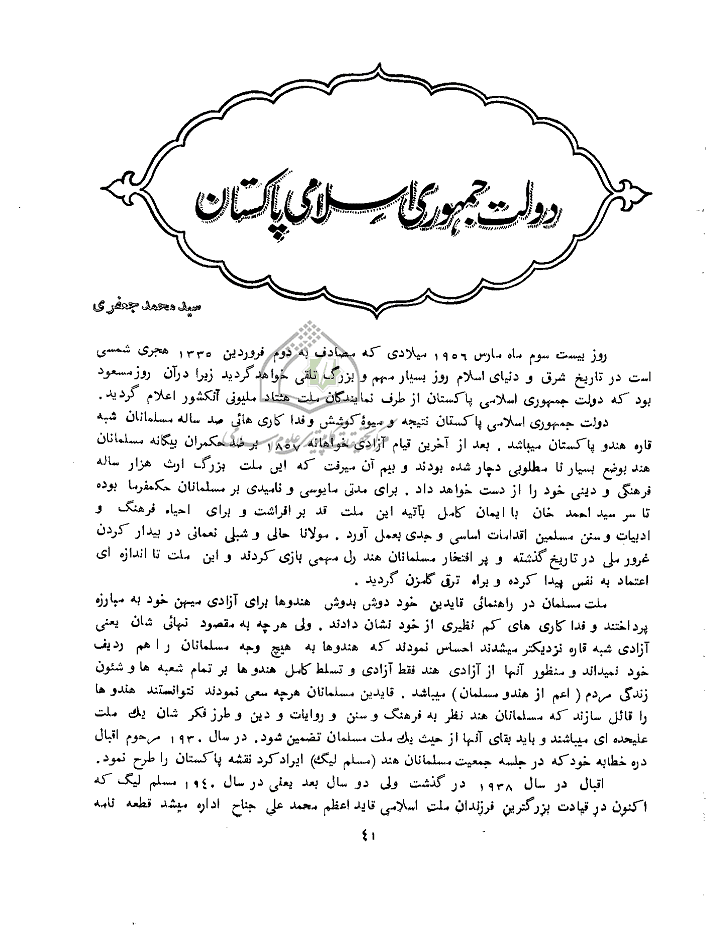 دولت جمهوری اسلامی پاکستان
سید محمد جعفری
روز بیست سوم ماه مارس ١٩٥٦ میلادی که مصادف به دوم فروردین ١٣٣٥ هجری شمسی
است در تاریخ شرق و دنیای اسلام روز بسیار مهم و بزرگ تلقی خواهد گردید زیرا درآن روز مسعود
بود که دولت جمهوری اسلامی پاکستان از طرف نمایندگان ملت هشتاد ملیونی آنکشور اعلام گردید.
دولت جمهوری اسلامی پاکستان نتیجه و میوۀ کوشش و فدا کاری هائی صد ساله مسلمانان شبه
قاره هندو پاکستان میباشد . بعد از آخرین قیام آزادی خواهانه ١٨٥٧ بر ضد حکمران بیگانه مسلمانان
هند بوضع بسیار نا مطلوبی دچار شده بودند و بیم آن میرفت که این ملت بزرگ ارث هزار ساله
فرهنگی و دینی خود را از دست خواهد داد . برای مدتی مایوسی و نامیدی بر مسلمانان حکمفرما بوده
تا سر سید احمد خان با ایمان کامل بآتیه این ملت قد بر افراشت و برای احیاء فرهنگ و
ادبیات و سنن مسلمین اقدامات اساسی و جدی بعمل آورد . مولانا حالی و شبلی نعمانی در بیدار کردن
غرور ملی در تاریخ گذشته و پر افتخار مسلمانان هند رل مهمی بازی کردند و این ملت تا اندازه ای
اعتماد به نفس پیدا کرده و براه ترقی گامزن گردید .
ملت مسلمان در راهنمائی قایدین خود دوش بدوش هندوها برای آزادی میهن خود به مبارزه
پرداختند و فدا کاری های کم نظیری از خود نشان دادند . ولی هرچه به مقصود نهائی شان یعنی
آزادی شبه قاره نزدیکتر میشدند احساس نمودند که هندوها به هیچ وجه مسلمانان را هم ردیف
خود نمیداند و منظور آنها از آزادی هند فقط آزادی و تسلط کامل هندو ها بر تمام شعبه ها و شئون
زندگی مردم ( اعم از هندو مسلمان ) میباشد . قایدین مسلمانان هرچه سعی نمودند نتوانستند هندو ها
را قائل سازند که مسلمانان هند نظر به فرهنگ و سنن و روایات و دین و طرز فکر شان یك ملت
علیحده ای میباشند و باید بقای آنها از حیث یك ملت مسلمان تضمین شود . در سال ١٩٣٠ مرحوم اقبال
دره خطابه خود که در جلسه جمعیت مسلمانان هند (مسلم لیگ) ایراد کرد نقشه پاکستان را طرح نمود.
اقبال در سال ١٩٣٨ در گذشت ولی دو سال بعد یعنی در سال ١٩٤٠ مسلم لیگ که
اکنون در قیادت بزرگترین فرزندان ملت اسلامی قاید اعظم محمد علی جناح اداره میشد قطعه نامه
٤١